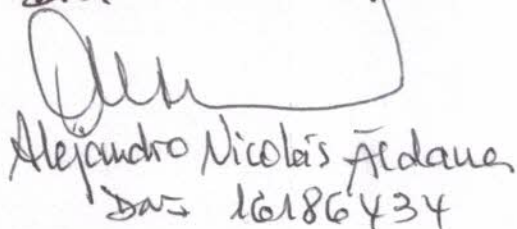 Alejandro Nicolás Aldana
DNI 16186434